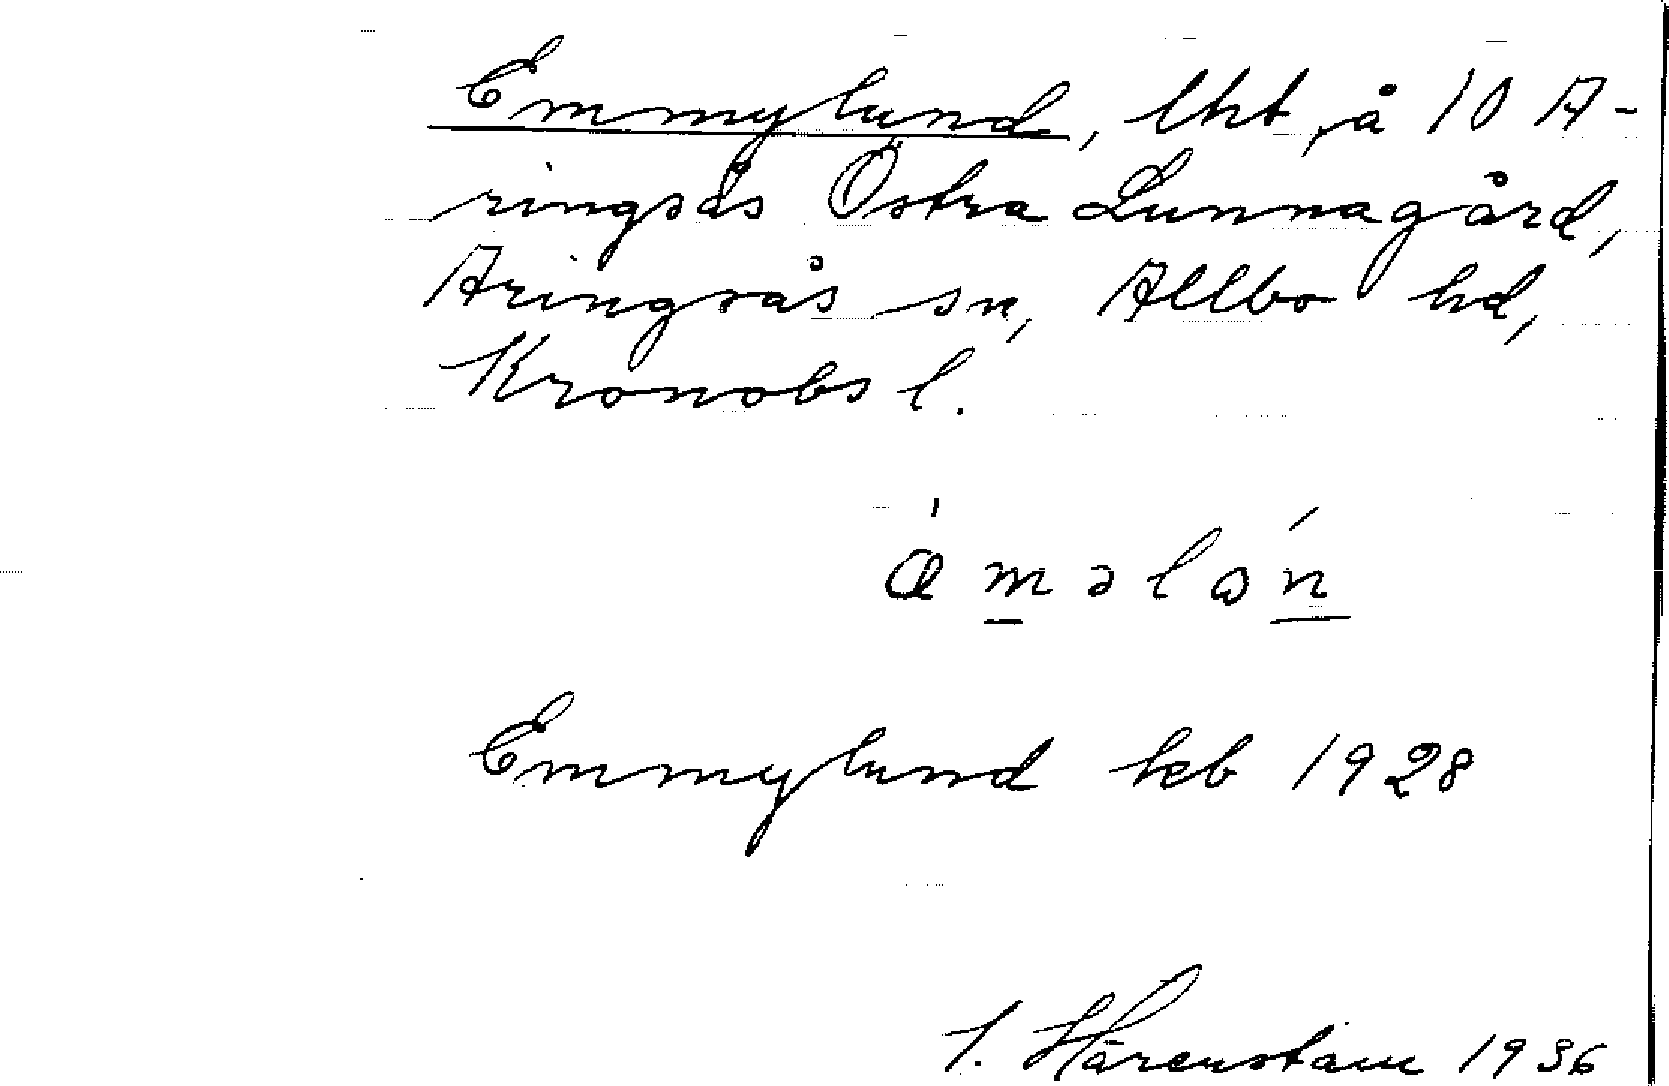 Emmylund, lht, å 10 A-
ringsås Östra Lunnagård,
Aringsås sn, Allbo hd,
Kronobs l.
Emmylund hcb 1928
Härenstam 1936